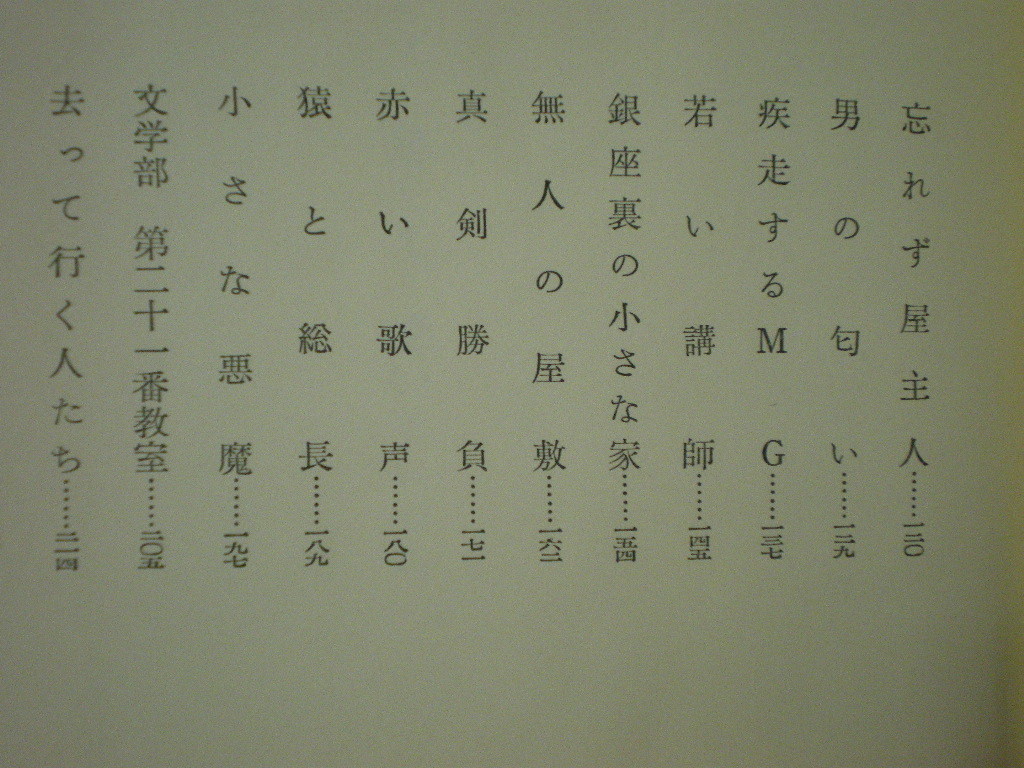 忘れず屋主人……一二〇
男の匂い……一二九
疾走するMG……一三七
若い講師……一四五
銀座裏の小さな家……一五四
無人の屋敷……一六二
真剣勝負……一七一
赤い歌声……一八〇
猿と総長……一八九
小さな悪魔……一九七
文学部　第二十一番教室……二〇五
去って行く人たち……二一四